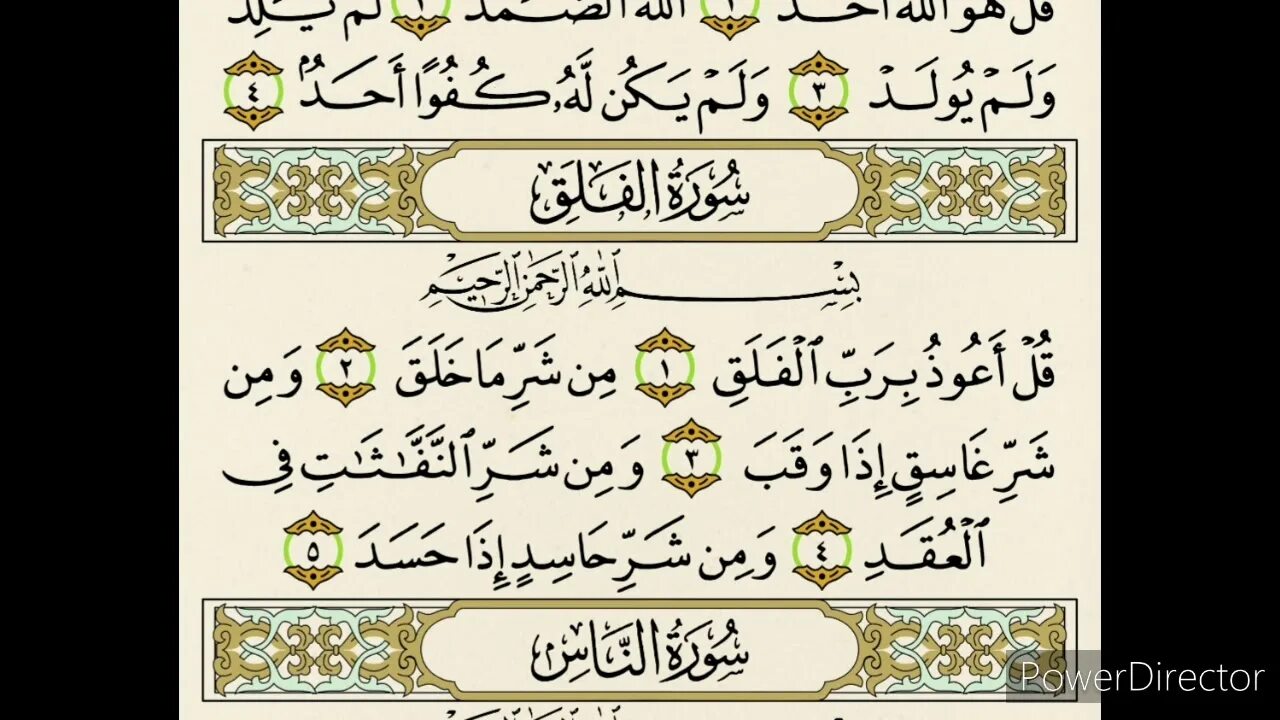 قُلْ هُوَ اللَّهُ أَحَدٌ ١ اللَّهُ الصَّمَدُ ٢ لَمْ يَلِدْ
وَلَمْ يُولَدْ ٣ وَلَمْ يَكُن لَّهُۥ كُفُوًا أَحَدٌۢ ٤
سُورَةُ الفَلَقِ
بِسْمِ ٱللَّهِ ٱلرَّحْمَٰنِ ٱلرَّحِيمِ
قُلْ أَعُوذُ بِرَبِّ ٱلْفَلَقِ ١ مِن شَرِّ مَا خَلَقَ ٢ وَمِن
شَرِّ غَاسِقٍ إِذَا وَقَبَ ٣ وَمِن شَرِّ ٱلنَّفَّٰثَٰتِ فِى
ٱلْعُقَدِ ٤ وَمِن شَرِّ حَاسِدٍ إِذَا حَسَدَ ٥
سُورَةُ النَّاسِ
PowerDirector